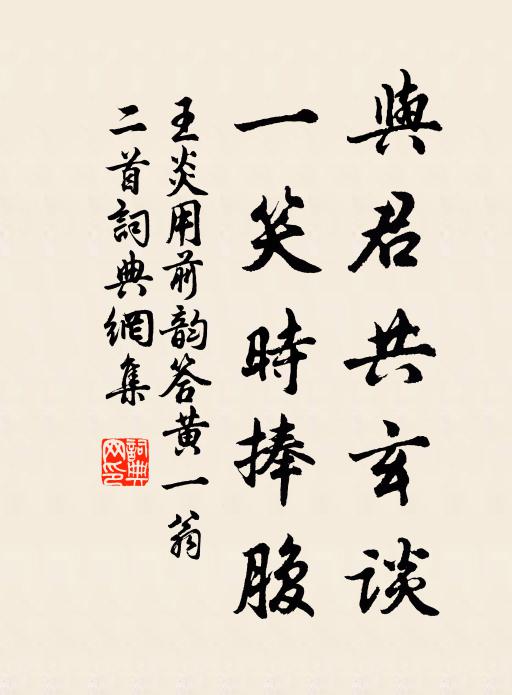 與君共玄談
一笑時捧腹
王炎用前韵答黄一翁
二首詞典網集
詞典
网印